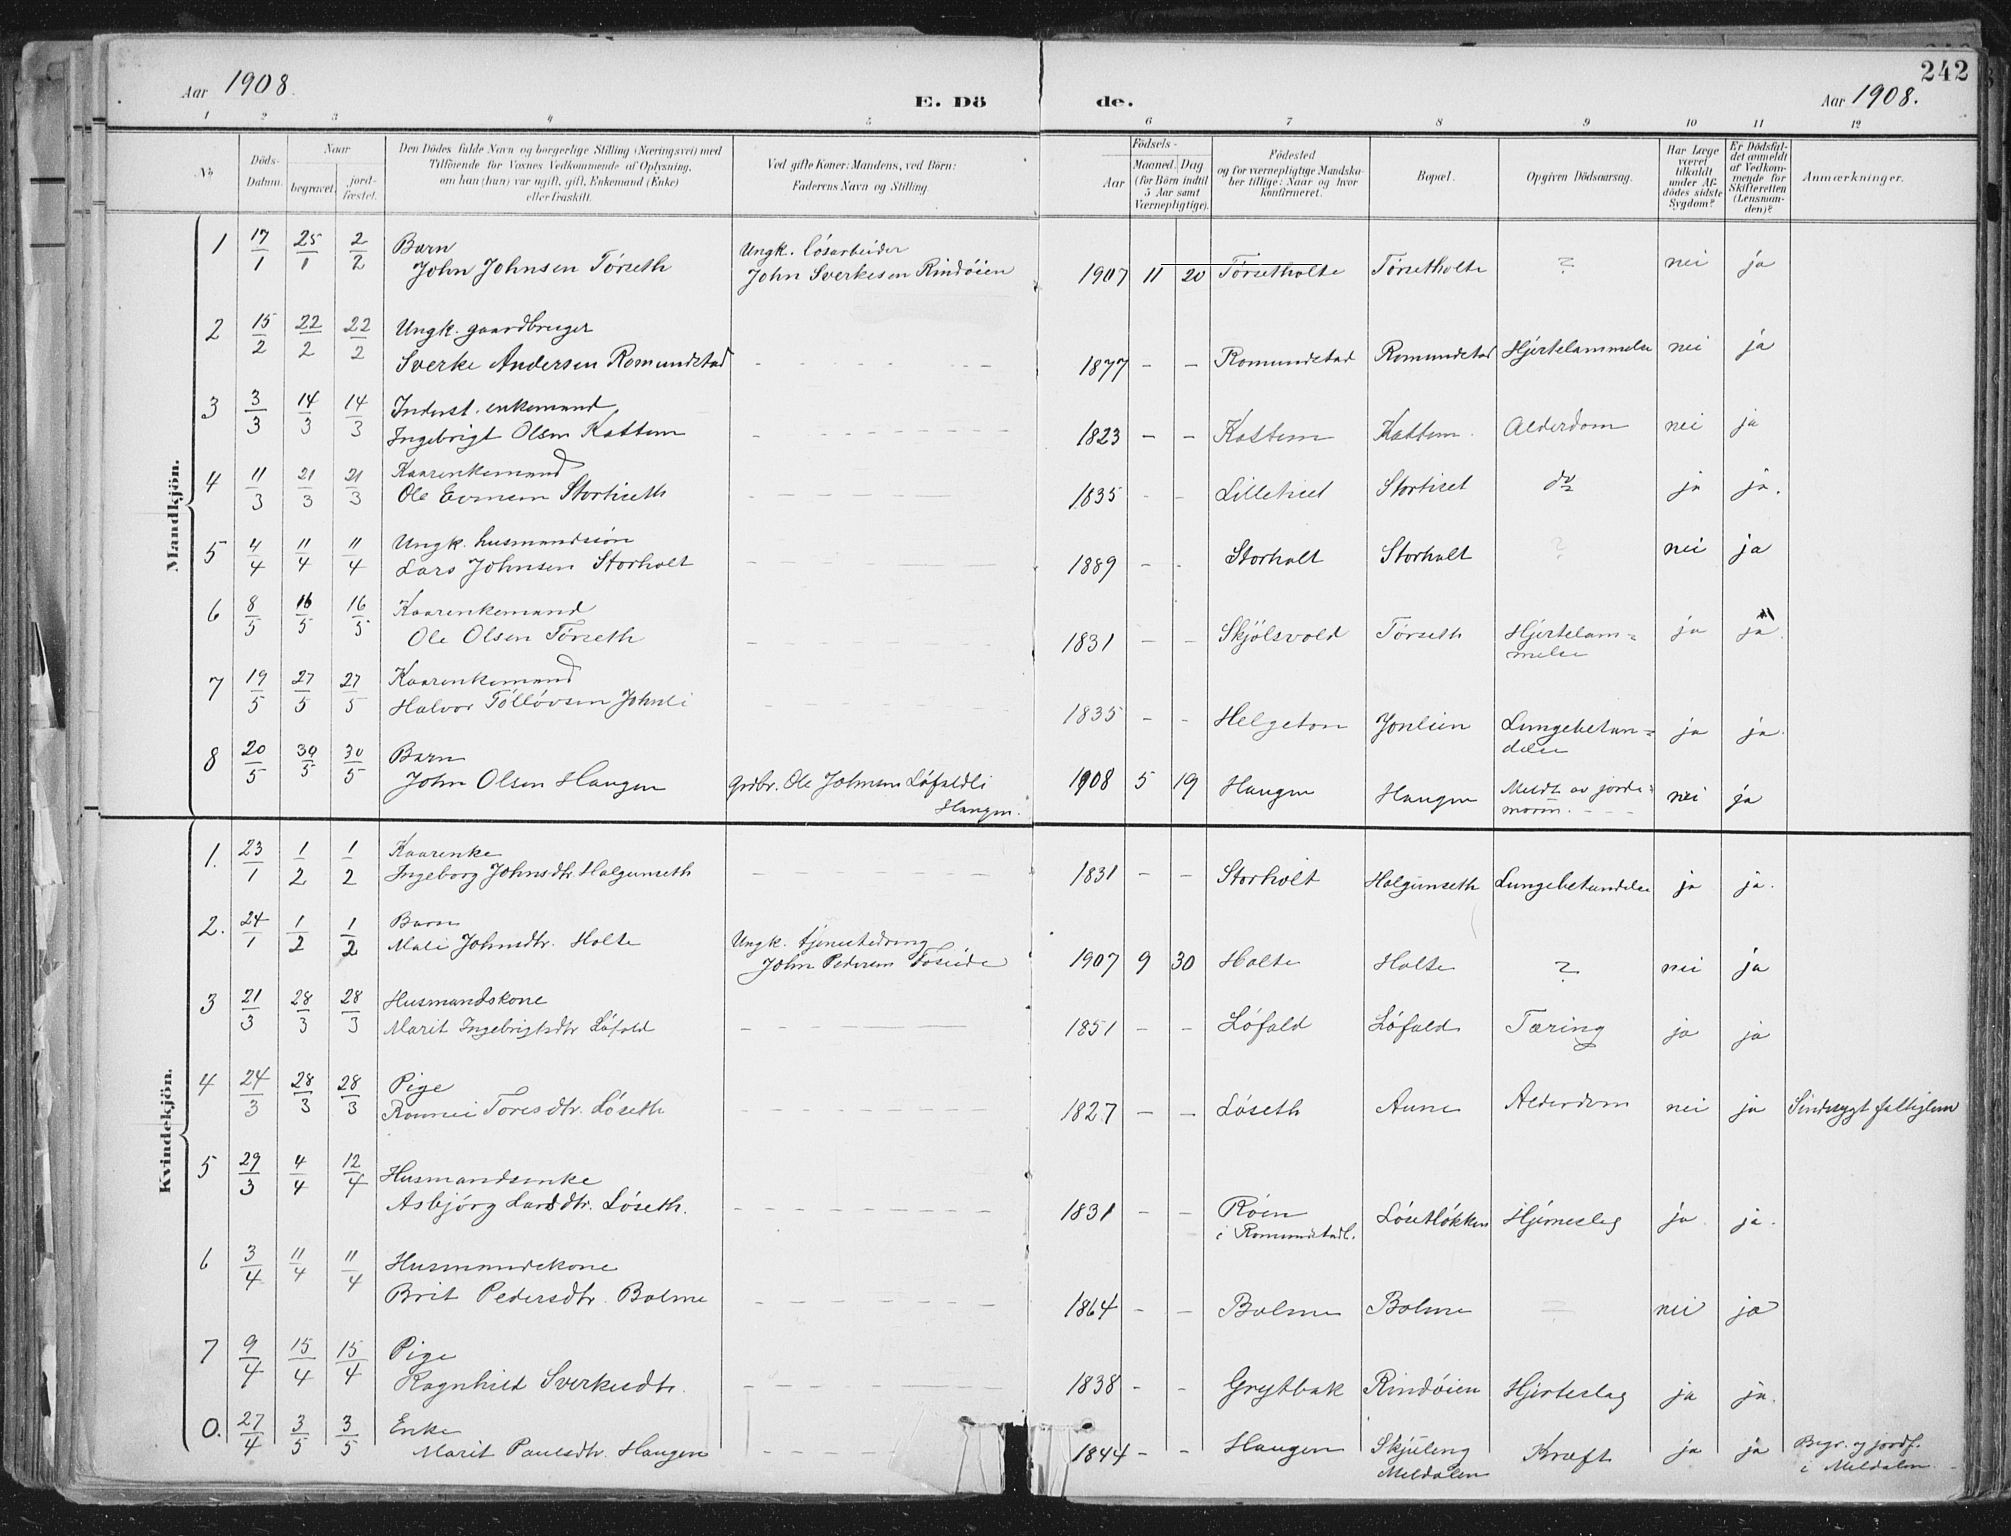 242
Aar 1908.
E. Dö
de.
Aar 1908.
1 2 3 4 5 6 7 8 9 10 11 12
No
Döds-Datum.
Naar
begravet.
jord-fæstet.
Den Dödes fulde Navn og borgerlige Stilling (Næringsvei) med
Tilföiende for Voxnes Vedkommende af Oplysning,
om han (hun) var ugift, gift, Enkemand (Enke)
eller fraskilt.
Ved gifte Koner: Mandens, ved Börn:
Faderens Navn og Stilling.
Födsels-
Aar
Maaned. Dag
(for Börn indtil
5 Aar samt
Værnepligtige).
Födested
og for værnepligtige Mandska-
ber tillige: Naar og hvor
konfirmeret.
Bopæl.
Opgiven Dödsaarsag.
Har Læge
været
tilkaldt
under Af-
dödes sidste
Sygdom?
Er Dödsfal-
det anmeldt
af Vedkom-
mende for
Skifteretten
(Lensman-
den)?
Anmærkninger.
Mandkjön.
1 17/1 25/1 2/2 Barn Ungk. løsarbeider
John Johnsen Tørseth John Sverkesen Rindøien 1907 11 20 Tørsetholte Tørsetholte ? nei ja
2 15/2 22/2 22/2 Ungk. gaardbruger
Sverke Andersen Romundstad - - - 1877 - - Romundstad Romundstad Hjertelammelse nei ja
3 3/3 14/3 14/3 Inderst. enkemand
Ingebrigt Olsen Kattem - - - 1823 - - Kattem Kattem. Alderdom nei ja
4 11/3 21/3 21/3 Kaarenkemand
Ole Evensen Stortiseth - - - 1835 - - Lilletiset Stortiset do ja ja.
5 4/4 11/4 11/4 Ungk. husmandssøn
Lars Johnsen Storholt - - - 1889 - - Storholt Storholt ? nei ja
6 8/5 16/5 16/5 Kaarenkemand
Ole Olsen Tørseth - - - 1831 - - Skjølsvold Tørseth Hjertelam=
melse ja ja.
7 19/5 27/5 27/5 Kaarenkemand
Halvor Tølløvsen Johnli - - - 1835 - - Helgeton Jonlien Lungebetæn=
delse ja ja.
8 20/5 30/5 30/5 Barn
John Olsen Haugen Grdbr. Ole Johnsen Løfaldli
Haugen. 1908 5 19 Haugen Haugen Meldt av jorde=
moren. - - - nei ja
Kvindekjön.
1. 23/1 1/2 1/2 Kaarenke
Ingeborg Johnsdtr Halgunseth - - - 1831 - - Storholt Halgunseth Lungebetændelse ja ja.
2. 24/1 1/2 1/2 Barn
Mali Johnsdtr. Holte Ungk. tjenestedreng
John Pedersen Foseide 1907 9 30 Holte Holte ? nei ja
3 21/3 28/3 28/3 Husmandskone
Marit Ingebrigtsdtr Løfald - - - 1851 - - Løfald Løfald Tæring ja ja
4 24/3 28/3 28/3 Pige
Ronnei Toresdtr. Løseth - - - 1827 - - Løseth Aune Alderdom nei ja Sindssygt fattiglem
5 29/3 4/4 12/4 Husmandsenke
Asbjørg Larsdtr. Løseth. - - - 1831 - - Røen
i Romundstadl. Løsetløkken Hjerneslag ja ja.
6 3/4 11/4 11/4 Husmandskone
Brit Pedersdtr. Bolme - - - 1864 - - Bolme Bolme = nei ja
7 9/4 15/4 15/4 Pige
Ragnhild Sverkesdtr. - - - 1838 - - Grytbak Rindøien Hjerteslag ja ja.
0. 27/4 3/5 3/5 Enke
Marit Paulsdtr. Haugen - - - 1844 - - Haugen Skjuleng
Meldalen Kræft ja ja Begr. og jordf.
i Meldalen